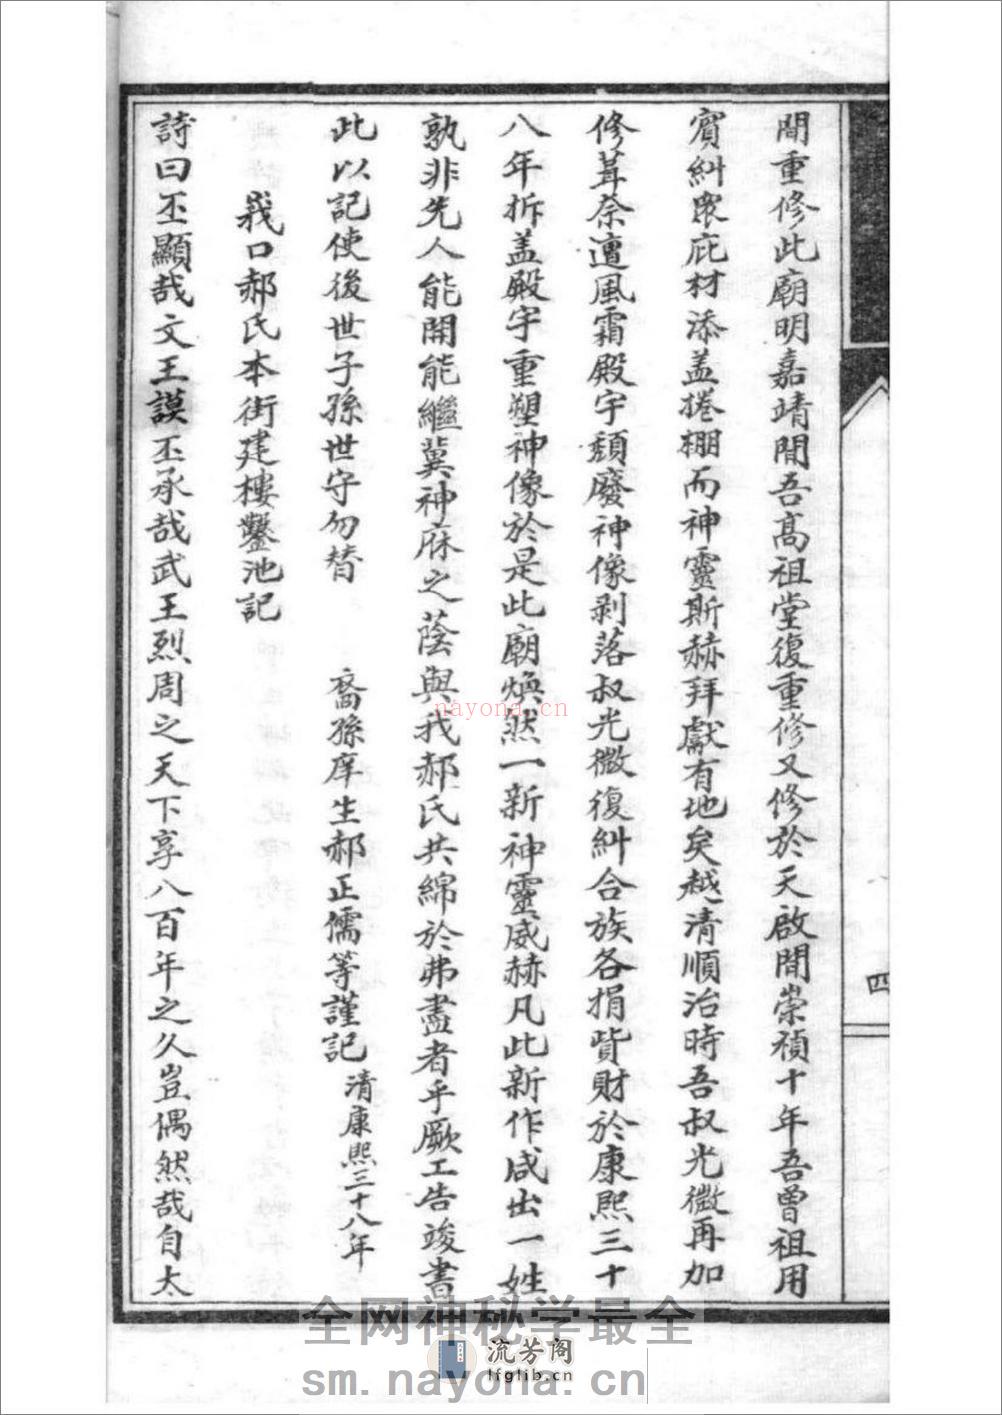 間重修此廟明嘉靖間吾高祖堂復重修又修於天啟間崇禎十年吾曾祖用
賓糾眾庇材添盖捲棚而神靈斯赫拜獻有地矣越清順治時吾叔光微再加
修葺奈遭風霜殿宇頹廢神像剥落叔光微復糾合族各捐貲財於康熙三十
八年拆盖殿宇重塑神像於是此廟煥然一新神靈威赫凡此新作咸出一姓
孰非先人能開能繼冀神庥之蔭與我郝氏共綿於弗盡者乎厥工告竣書
此以記使後世子孫世守勿替　裔孫庠生郝正儒等謹記　清康熙三十八年
峩口郝氏本街建樓鑿池記
詩曰丕顯哉文王謨丕承哉武王烈周之天下享八百年之久豈偶然哉自太
四
nayona.cn
全网神秘学最全
流芳阁
lfglib.cn
sm.nayona.cn